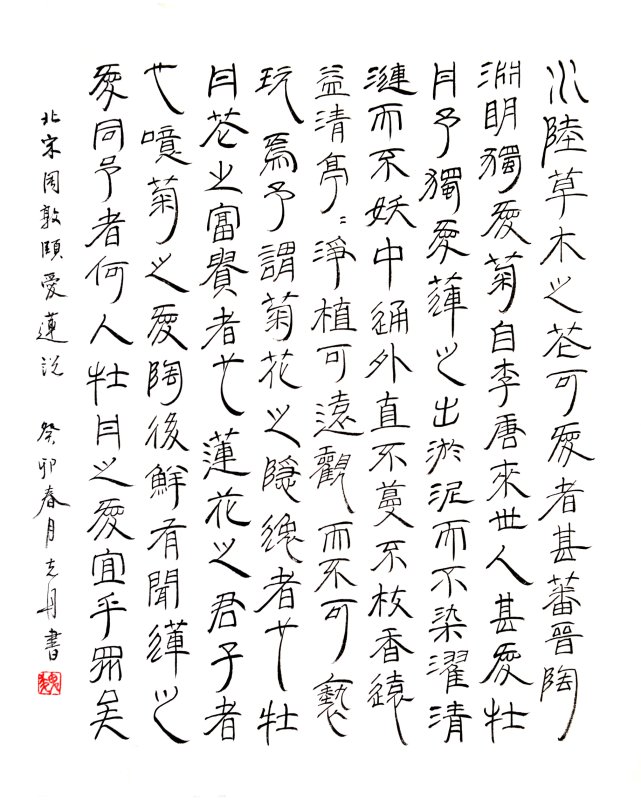 水陸草木之花可愛者甚蕃晉陶
淵明獨愛菊自李唐來世人甚愛牡
丹予獨愛蓮之出淤泥而不染濯清
漣而不妖中通外直不蔓不枝香遠
益清亭〻淨植可遠觀而不可褻
玩焉予謂菊花之隱逸者也牡
丹花之富貴者也蓮花之君子者
也噫菊之愛陶後鮮有聞蓮之
愛同予者何人牡丹之愛宜乎眾矣
北宋周敦頤愛蓮説 癸卯春月志丹書
魏